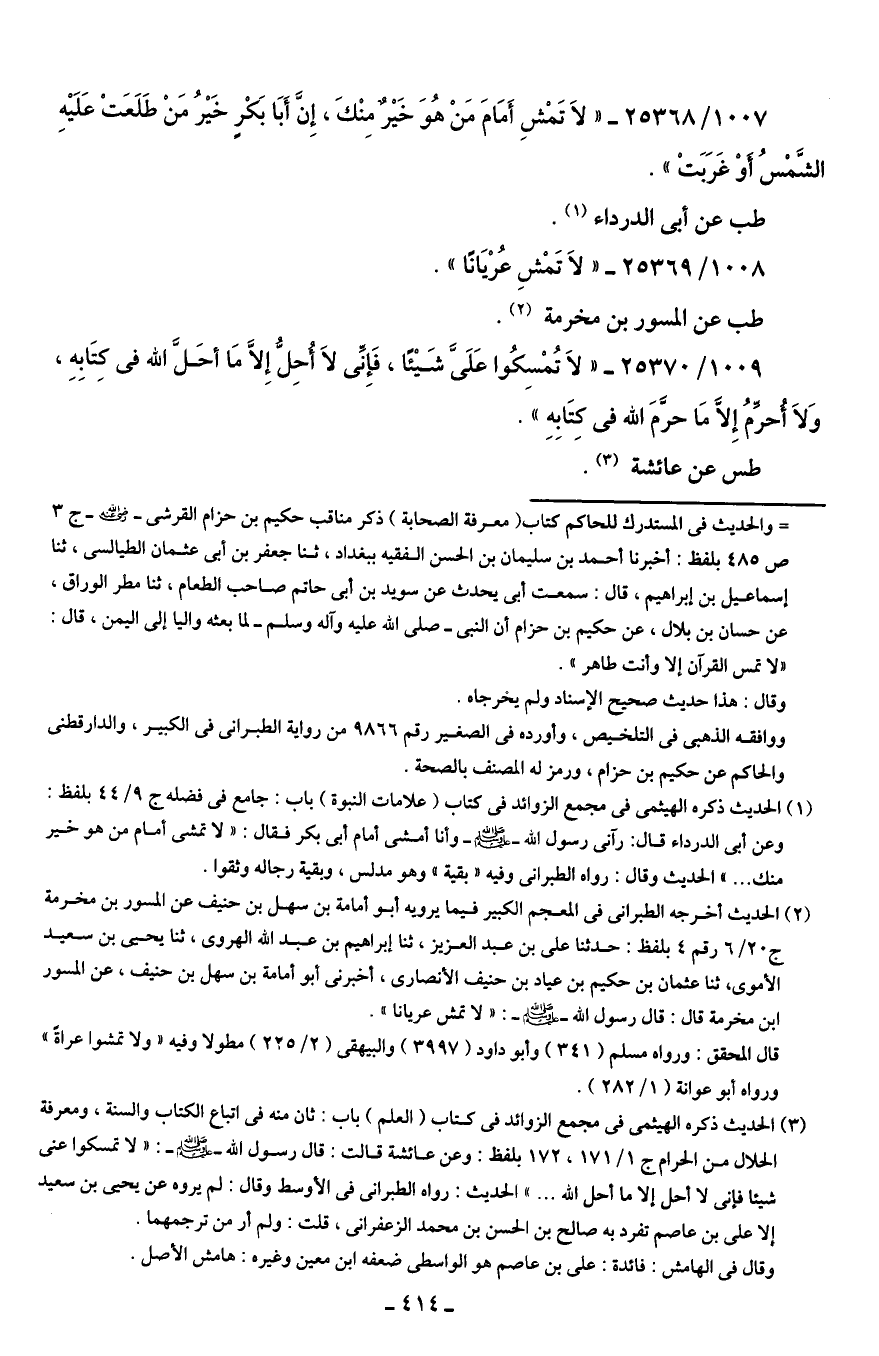 ٢٥٣٦٨/١٠٠٧ ـ « لاَ تَمْشِ أَمَامَ مَنْ هُوَ خَيْرٌ مِنْكَ ، إِنَّ أَبَا بَكْرٍ خَيْرُ مَنْ طَلَعَتْ عَلَيْهِ
الشَّمْسُ أَوْ غَرَبَتْ » .
طب عن أبى الدرداء (١) .
٢٥٣٦٩/١٠٠٨ ـ « لاَ تَمْشِ عُرْيَانًا » .
طب عن المسور بن مخرمة (٢) .
٢٥٣٧٠/١٠٠٩ ـ « لاَ تُمْسِكُوا عَلَىَّ شَيْئًا ، فَإِنِّى لاَ أُحِلُّ إِلاَّ مَا أحَلَّ الله فى كِتَابِهِ ،
وَلاَ أُحرِّمُ إِلاَّ مَا حرَّمَ الله فى كِتَابِهِ » .
طس عن عائشة (٣) .
= والحديث فى المستدرك للحاكم كتاب( معرفة الصحابة ) ذكر مناقب حكيم بن حزام القرشى ـ رضي الله عنه ـ ج ٣
ص ٤٨٥ بلفظ : أخبرنا أحمد بن سليمان بن الحسن الفقيه ببغداد ، ثنا جعفر بن أبى عثمان الطيالسى ، ثنا
إسماعيل بن إبراهيم ، قال : سمعت أبى يحدث عن سويد بن أبى حاتم صاحب الطعام ، ثنا مطر الوراق ،
عن حسان بن بلال ، عن حكيم بن حزام أن النبى ـ صلى الله عليه وآله وسلم ـ لما بعثه واليا إلى اليمن ، قال :
«لا تمس القرآن إلا وأنت طاهر » .
وقال : هذا حديث صحيح الإسناد ولم يخرجاه .
ووافقه الذهبى فى التلخيص ، وأورده فى الصغير رقم ٩٨٦٦ من رواية الطبرانى فى الكبير ، والدارقطنى
والحاكم عن حكيم بن حزام ، ورمز له المصنف بالصحة .
(١) الحديث ذكره الهيثمى فى مجمع الزوائد فى كتاب ( علامات النبوة ) باب : جامع فى فضله ج ٩/ ٤٤ بلفظ :
وعن أبى الدرداء قال: رآنى رسول الله ـ ﷺ ـ وأنا أمشى أمام أبى بكر فقال : « لا تمشى أمام من هو خير
منك... » الحديث وقال : رواه الطبرانى وفيه « بقية » وهو مدلس ، وبقية رجاله وثقوا .
(٢) الحديث أخرجه الطبرانى فى المعجم الكبير فيما يرويه أبو أمامة بن سهل بن حنيف عن المسور بن مخرمة
ج٢٠/ ٦ رقم ٤ بلفظ : حدثنا على بن عبد العزيز ، ثنا إبراهيم بن عبد الله الهروى ، ثنا يحيى بن سعيد
الأموى، ثنا عثمان بن حكيم بن عياد بن حنيف الأنصارى ، أخبرنى أبو أمامة بن سهل بن حنيف ، عن المسور
ابن مخرمة قال : قال رسول الله ـ ﷺ ـ : « لا تمش عريانا » .
قال المحقق : ورواه مسلم ( ٣٤١ ) وأبو داود ( ٣٩٩٧ ) والبيهقى ( ٢/ ٢٢٥ ) مطولا وفيه « ولا تمشوا عراةً »
ورواه أبو عوانة ( ١/ ٢٨٢ ) .
(٣) الحديث ذكره الهيثمى فى مجمع الزوائد فى كتاب ( العلم ) باب : ثان منه فى اتباع الكتاب والسنة ، ومعرفة
الحلال من الحرام ج ١/ ١٧١ ، ١٧٢ بلفظ : وعن عائشة قالت : قال رسول الله ـ ﷺ ـ : « لا تمسكوا عنى
شيئا فإنى لا أحل إلا ما أحل الله ... » الحديث : رواه الطبرانى فى الأوسط وقال : لم يروه عن يحيى بن سعيد
إلا على بن عاصم تفرد به صالح بن الحسن بن محمد الزعفرانى ، قلت : ولم أر من ترجمهما .
وقال فى الهامش : فائدة : على بن عاصم هو الواسطى ضعفه ابن معين وغيره : هامش الأصل .
ـ ٤١٤ ـ